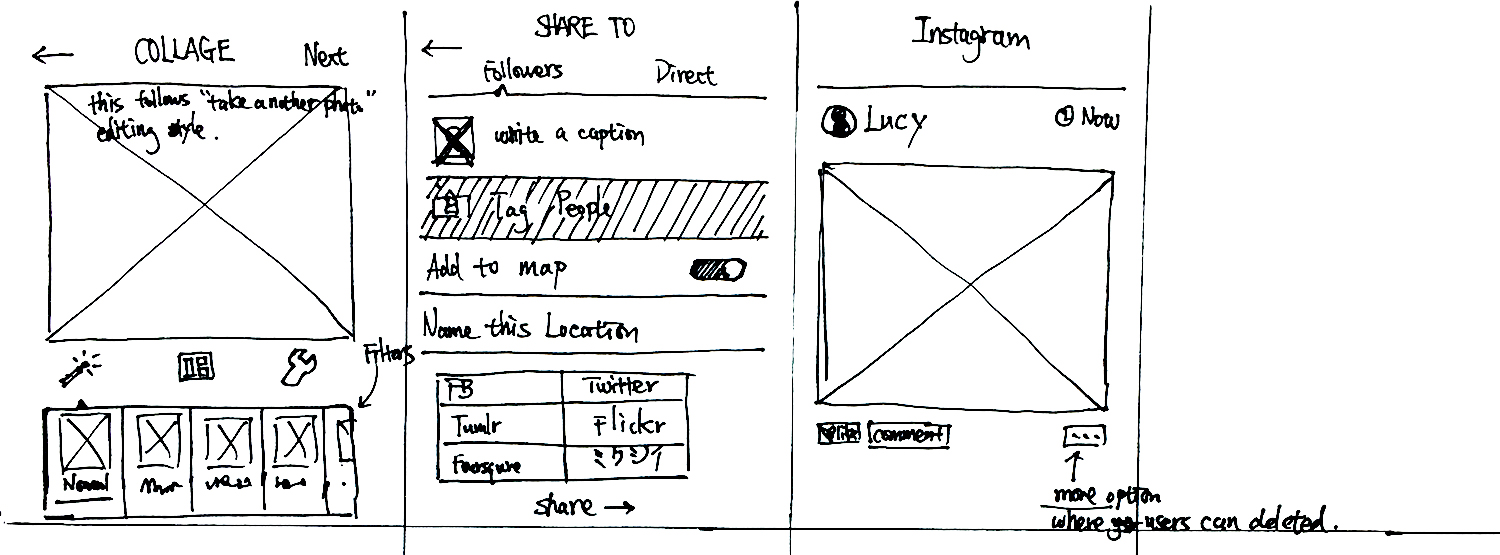 ← COLLAGE Next
this follows "take another photo"
editing style.
Filters
Normal
SHARE TO
←
Followers Direct
write a caption
Tag People
Add to map
Name this Location
FB Twitter
Tumlr Flickr
Foursqure ミクシィ
share →
Instagram
Lucy Now
like comment ...
more option
where users can deleted.